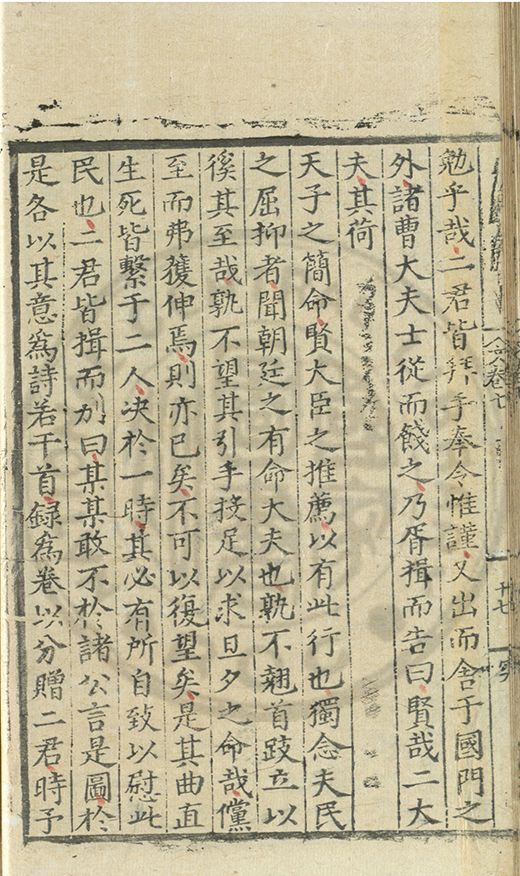 卷七
十七
勉乎哉二君皆拜手奉令惟謹又出而舍于國門之
外諸曹大夫士從而餞之乃胥揖而告曰賢哉二大
夫其荷
天子之簡命賢大臣之推薦以有此行也獨念夫民
之屈抑者聞朝廷之有命大夫也孰不翹首跂立以
徯其至哉孰不望其引手投足以求旦夕之命哉儻
至而弗獲伸焉則亦已矣不可以復望矣是其曲直
生死皆繫于二人决於一時其必有所自致以慰此
民也二君皆揖而別曰某某敢不於諸公言是圖於
是各以其意寫詩若干首録寫卷以分贈二君時予